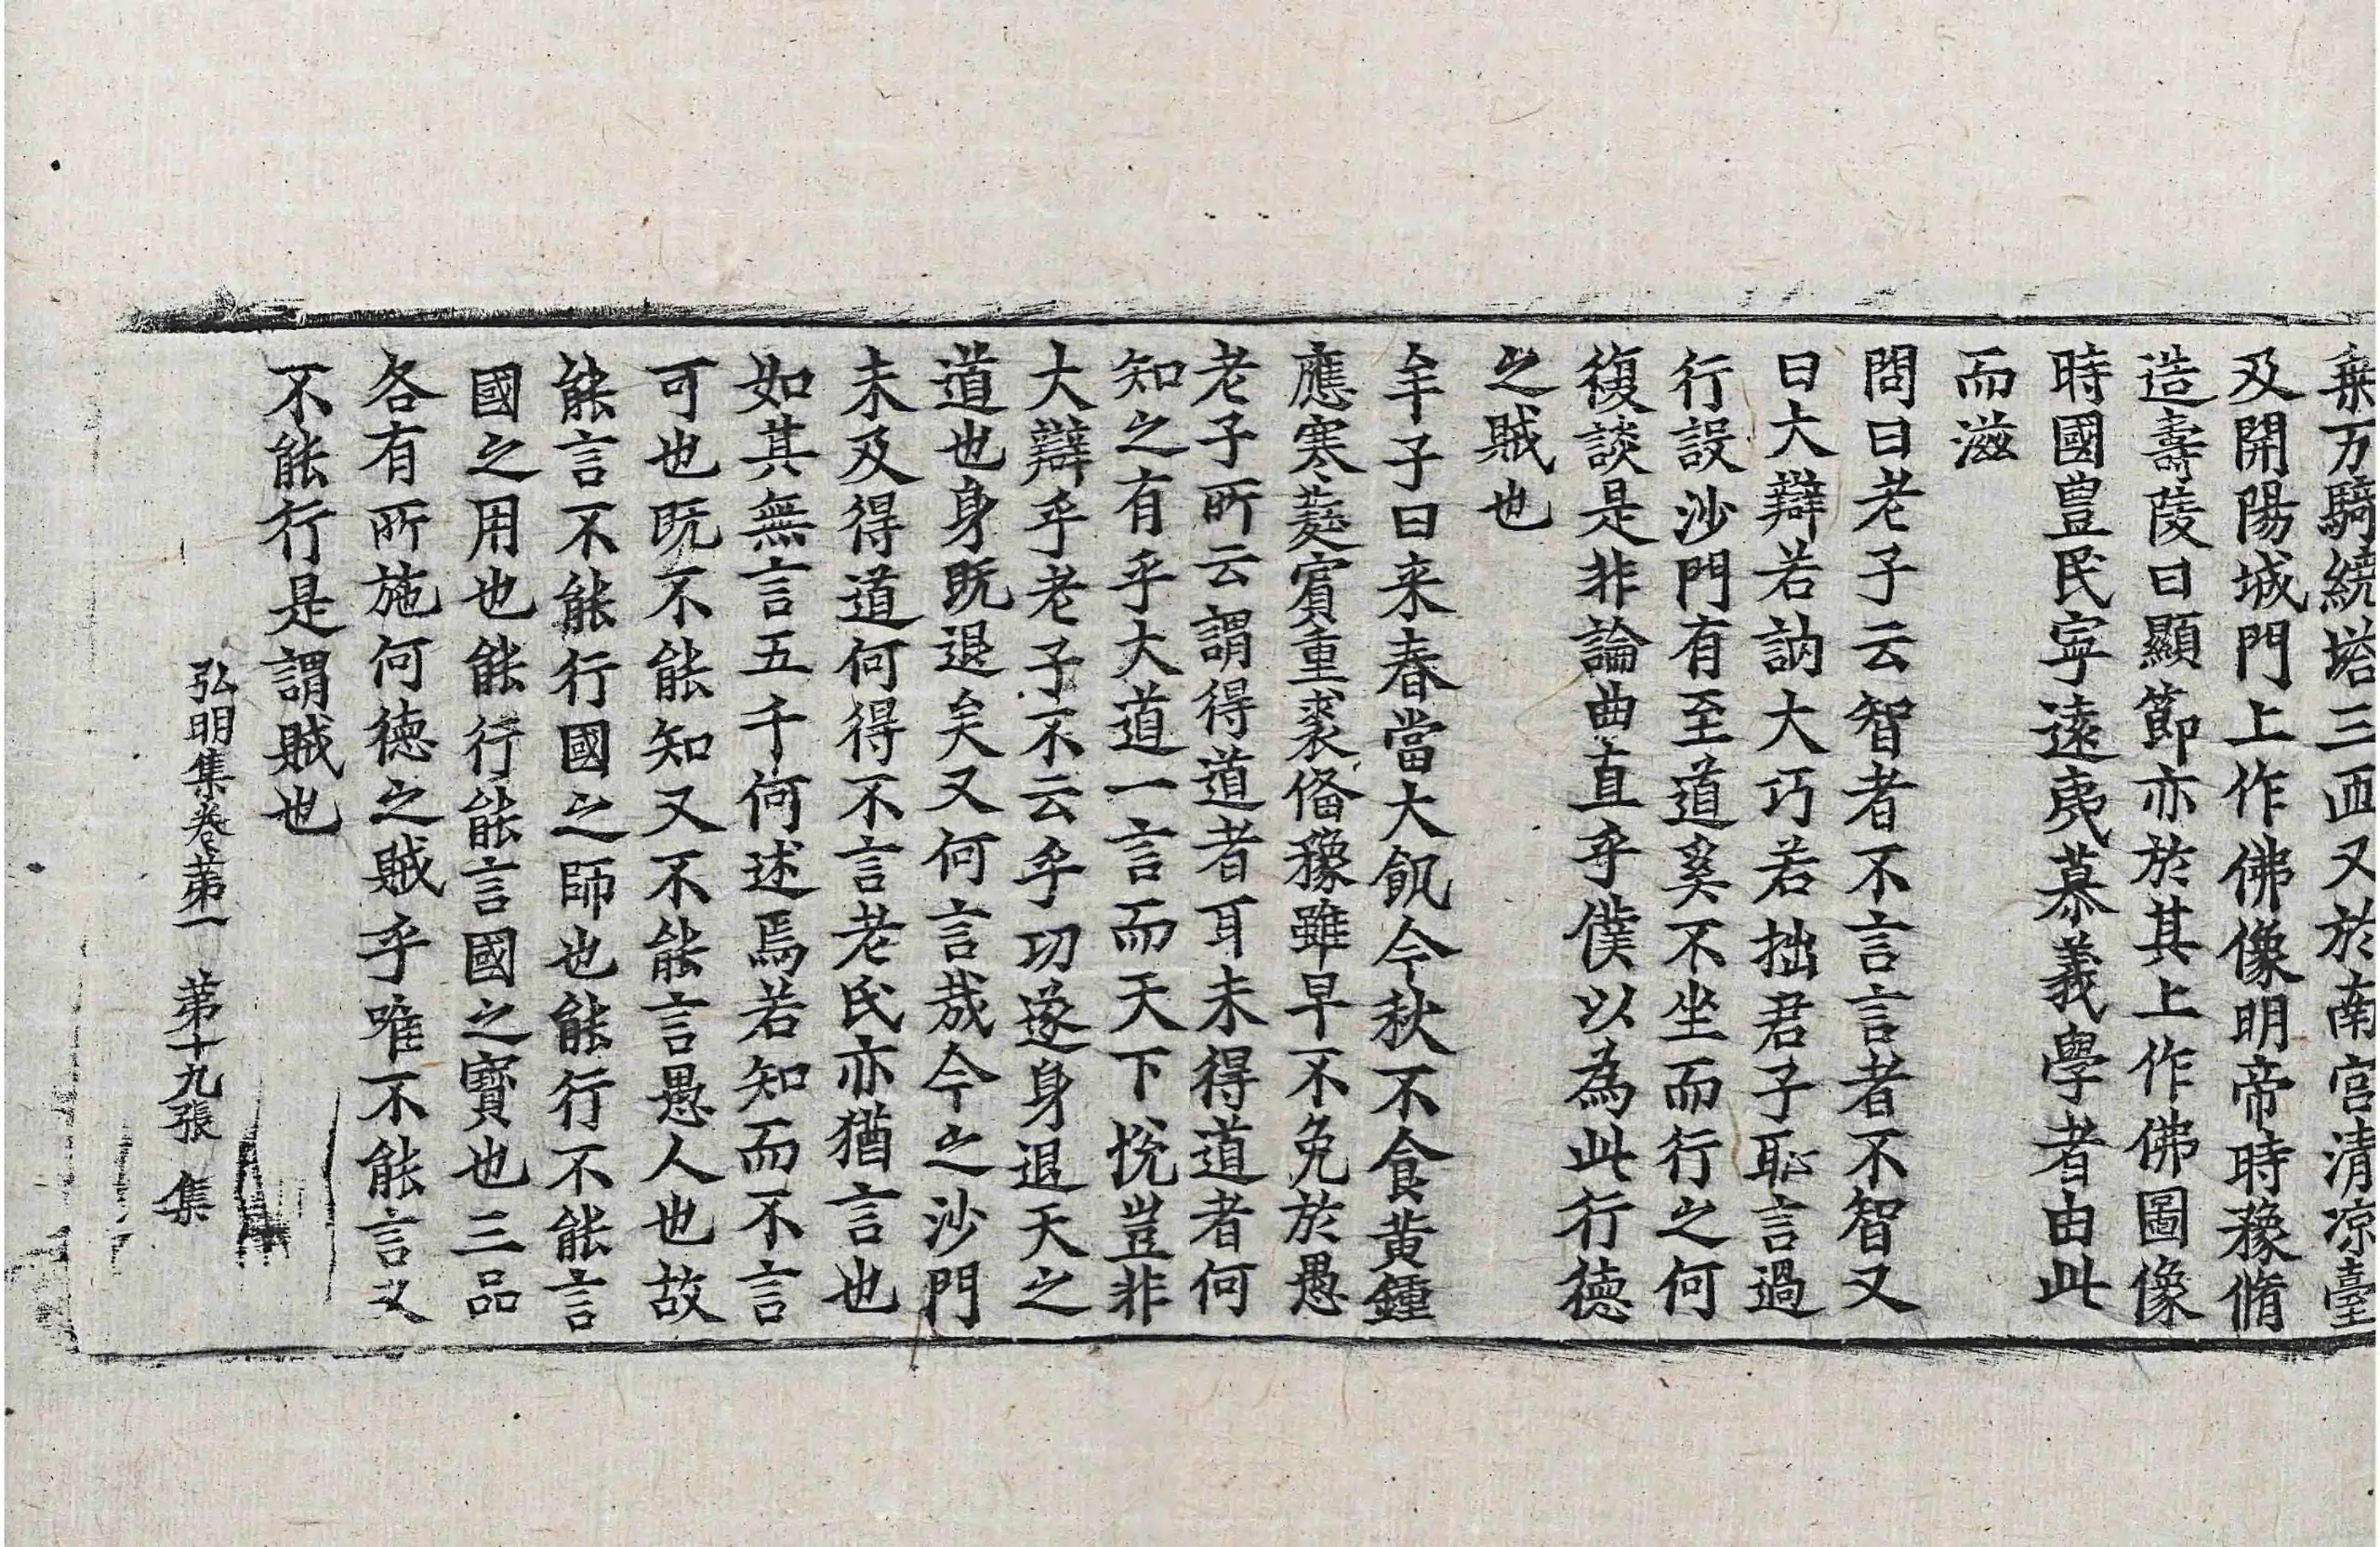 乗万騎繞塔三匝又於南宫清凉臺
及開陽城門上作佛像明帝時豫脩
造壽陵曰顯節亦於其上作佛圖像
時國豊民寧遠夷慕義學者由此
而滋
問曰老子云智者不言言者不智又
曰大辯若訥大巧若拙君子恥言過
行設沙門有至道奚不坐而行之何
復談是非論曲直乎僕以為此行徳
之賊也
牟子曰来春當大飢今秋不食黄鍾
應寒蕤賓重裘俻豫雖早不免於愚
老子所云謂得道者耳未得道者何
知之有乎大道一言而天下悅豈非
大辯乎老子不云乎功遂身退天之
道也身既退矣又何言哉今之沙門
未及得道何得不言老氏亦猶言也
如其無言五千何述焉若知而不言
可也既不能知又不能言愚人也故
能言不能行國之師也能行不能言
國之用也能行能言國之寳也三品
各有所施何徳之賊乎唯不能言又
不能行是謂賊也
弘明集卷苐一　苐十九張　集